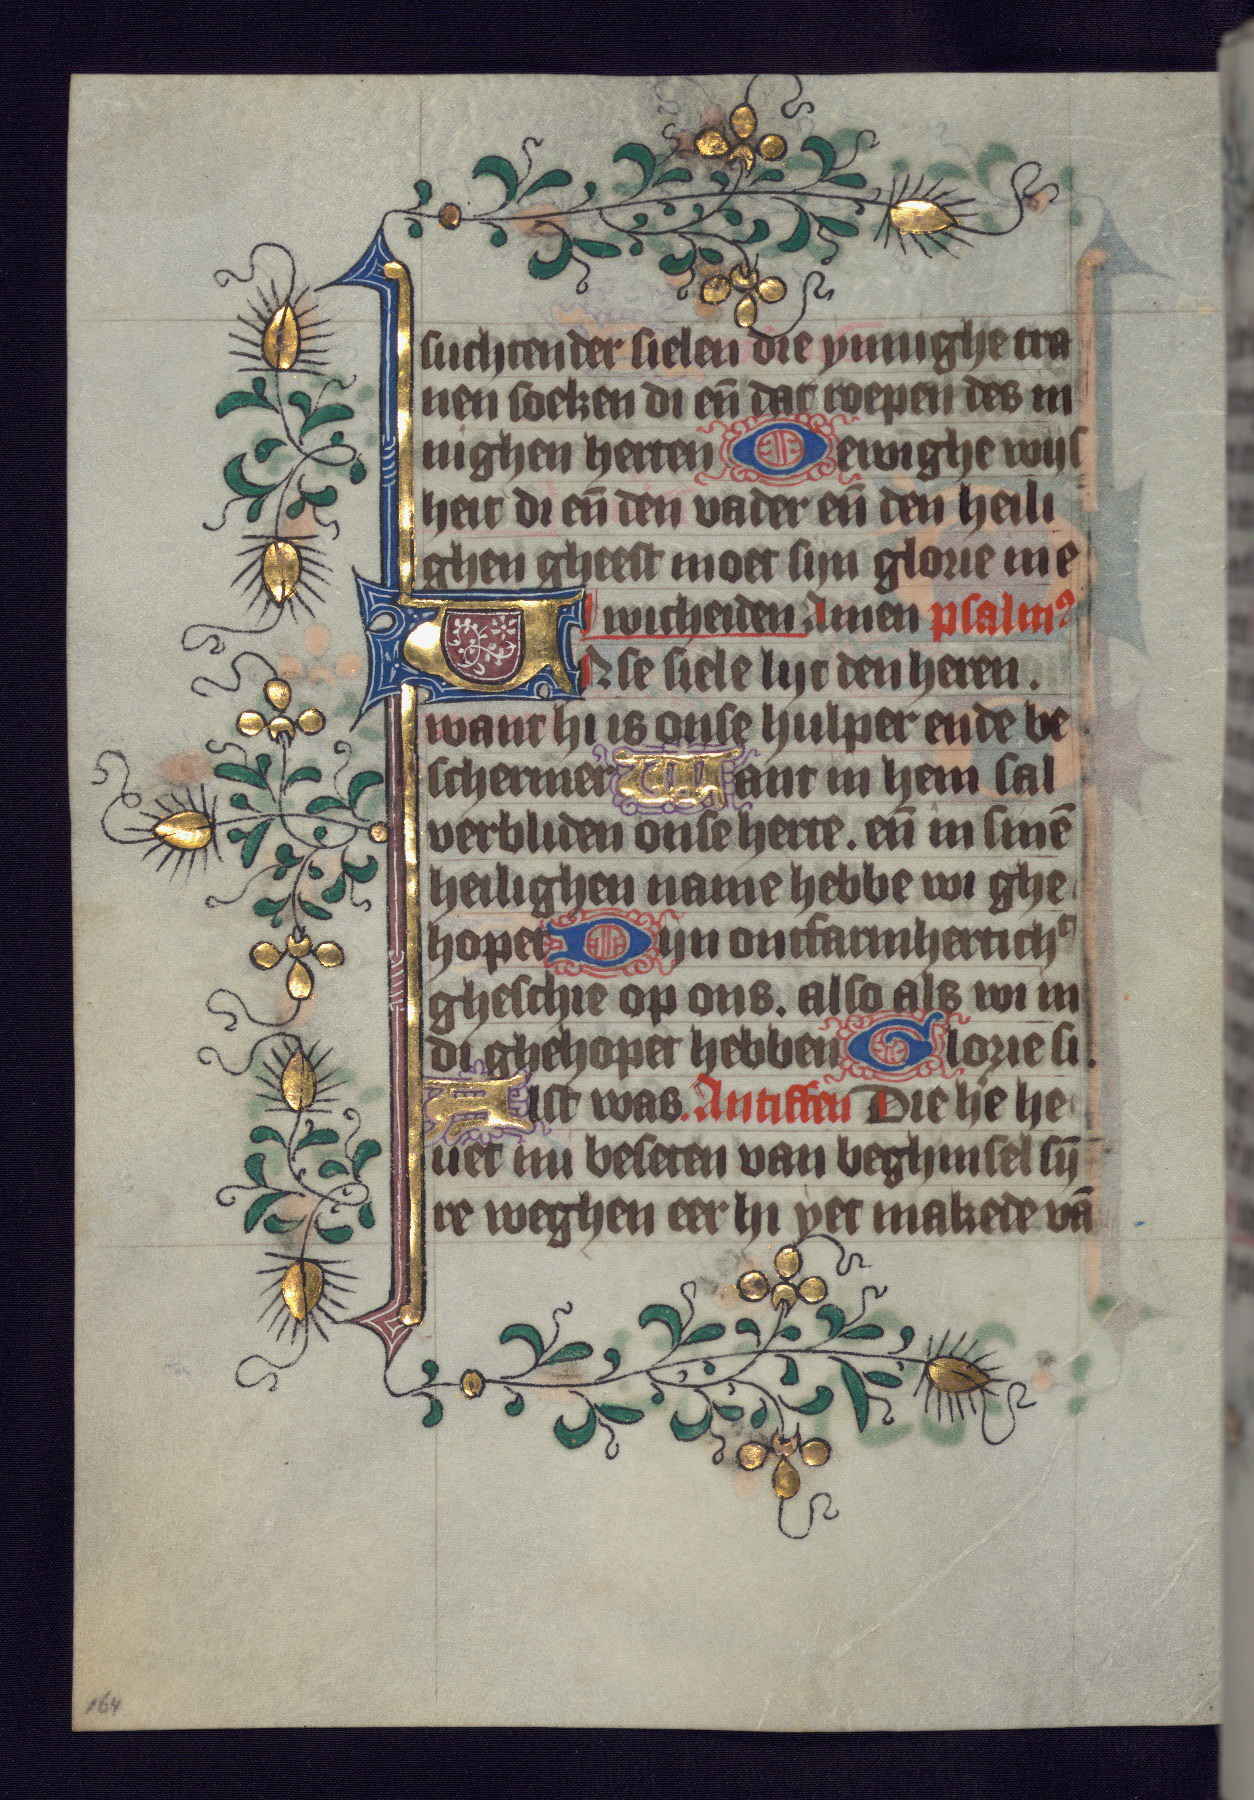 suchtender sielen die ynnighe tra
nen soeken di en̄ dat roepen des in
nighen herten O ewighe wijs
heit di en̄ den vader en̄ den heili
ghen gheest moet sijn glorie in e
wicheiden Amen psalmꝰ
Onse siele lijt den heren .
want hi is onse hulper ende be
schermer Want in hem sal
verbliden onse herte . en̄ in sinē
heilighen name hebbe wi ghe
hopet Dijn ontfarmherticht
gheschie op ons . also als wi in
di ghehopet hebben Glorie si .
Alst was . Antiffen Die he he
uet mi beseten van beghinsel sij̄
re weghen eer hi yet makede vā
164